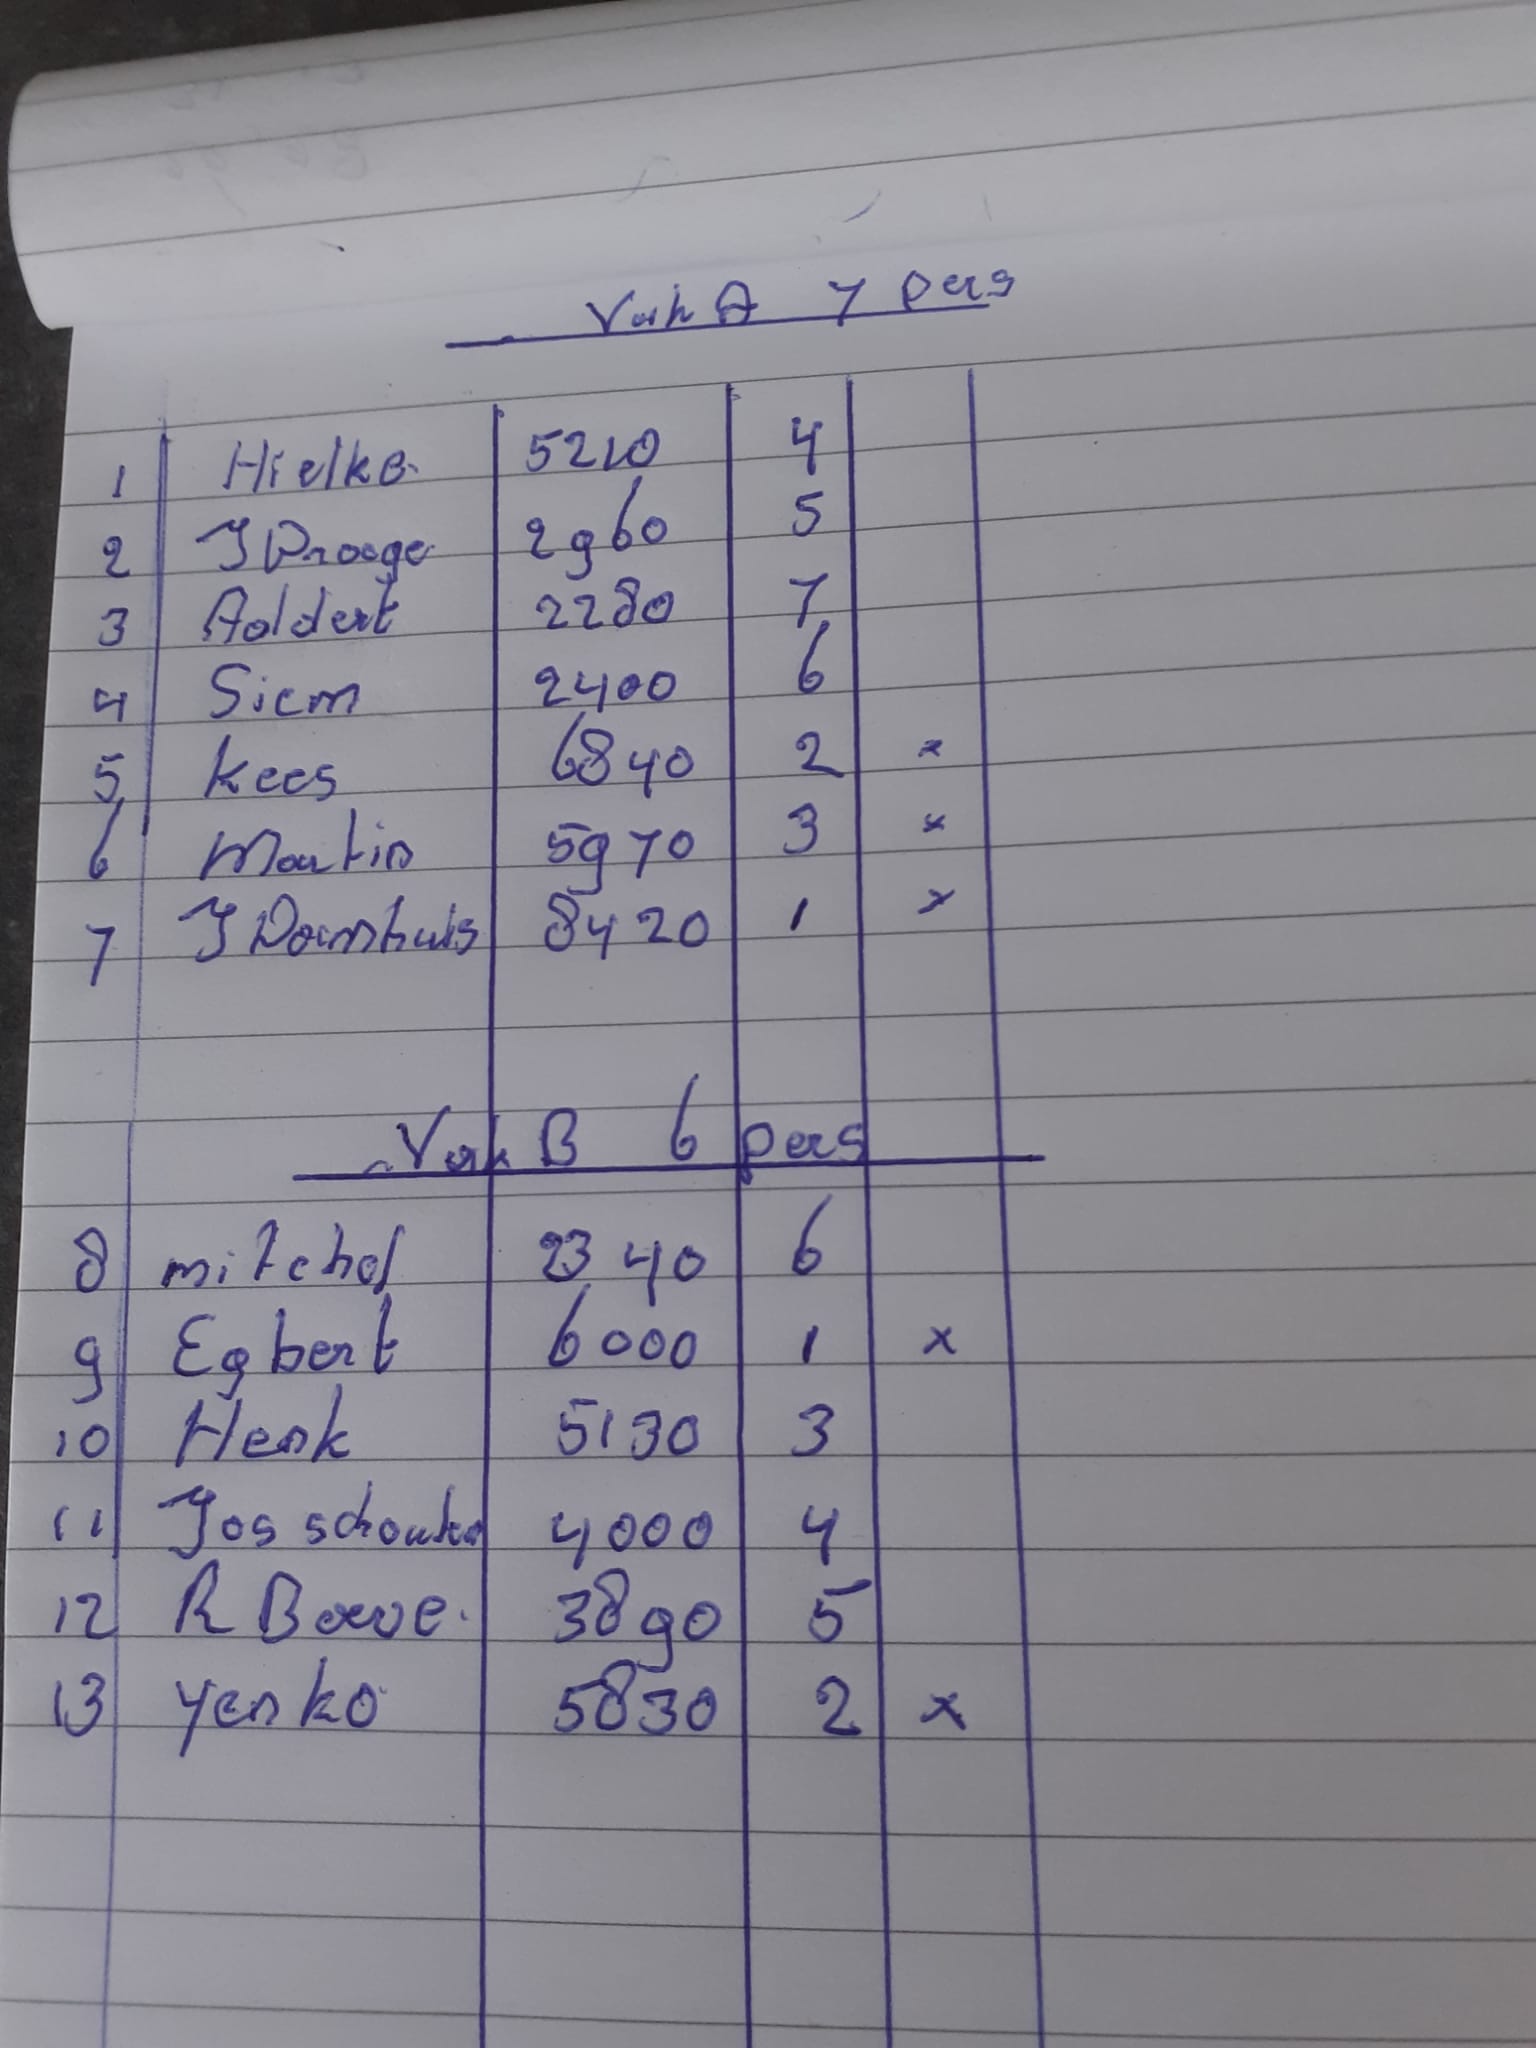 Vak A 7 pers
1 Hielke 5210 4
2 J Drooge 2960 5
3 Aoldert 2280 7
4 Siem 2400 6
5 Kees 6840 2 x
6 Martin 5970 3 x
7 J Doornhuis 8420 1 x
Vak B 6 pers
8 mitchel 2340 6
9 Egbert 6000 1 x
10 Henk 5130 3
11 Jos 4000 4
12 R 3890 5
13 Yenko 5830 2 x